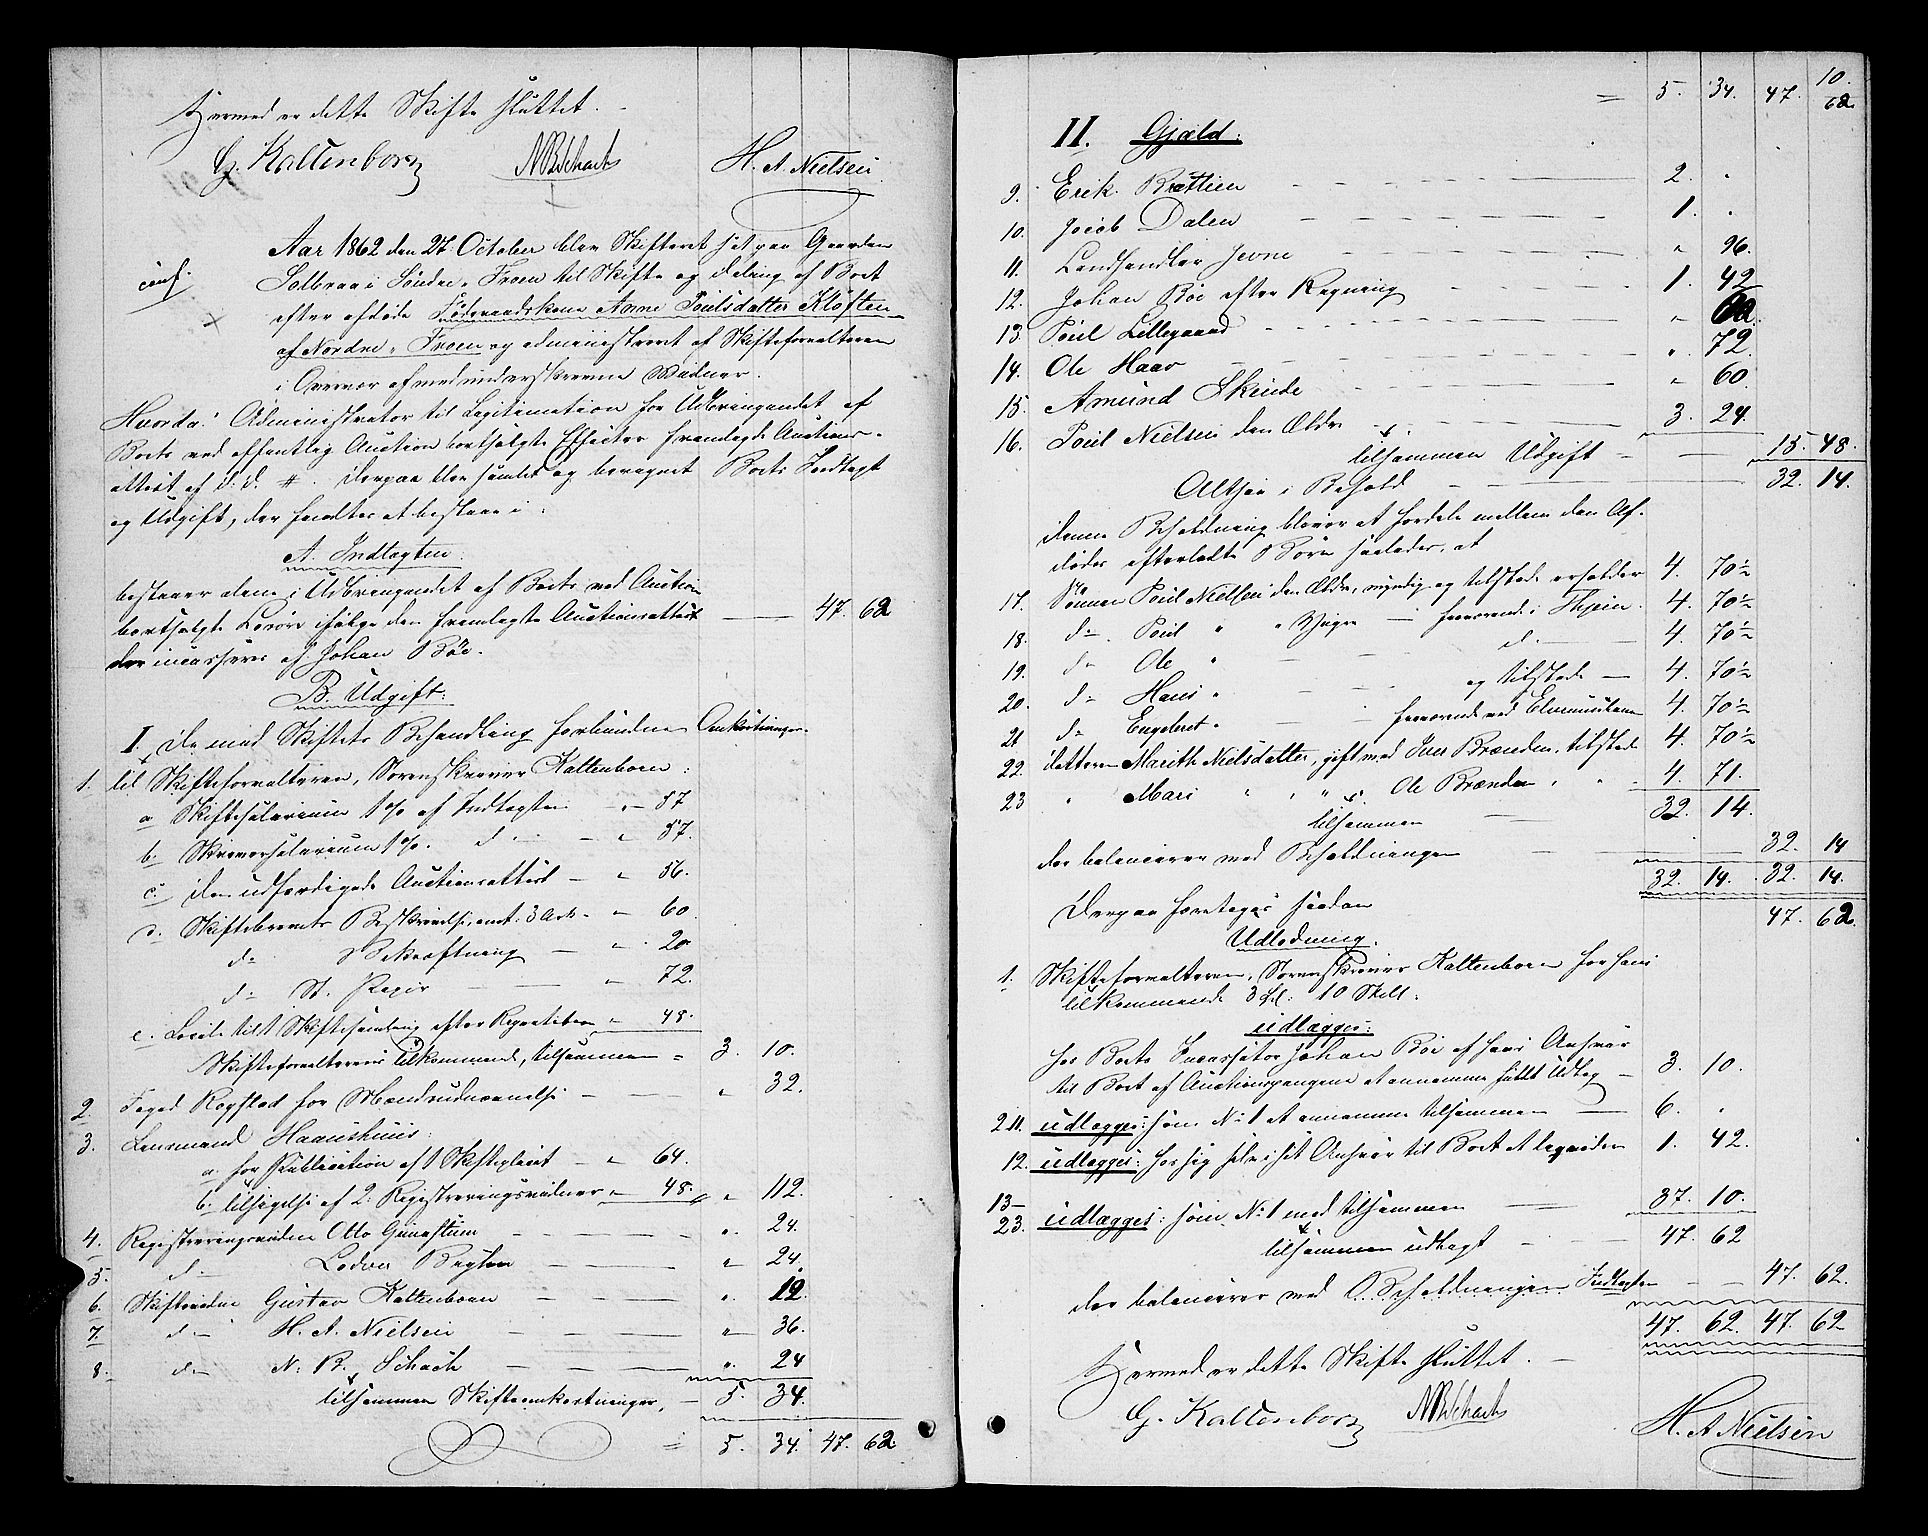 Hermed er dette Skifte sluttet. –
G. Kaltenborn NBSchach H. A. Nielsen
Aar 1862 den 27. October blev Skifteret sat paa Gaarden
Solbraa i Søndre-Froen til Skifte og Deling af Boet
efter afdøde Føderaadskone Anne Poulsdatter Kløften
af Nordre-Froen og administreret af Skifteforvalteren
i Overvær af medunderskrevne Vidner.
Hvorda: Administrator til Legitimation for Udbringendet af
Boets ved offentlig Auction bortsolgte Effecter fremlagde Auctions-
attest af d: d. #. Derpaa blev samlet og beregnet Boets Indtægt
og Udgift, der fandtes at bestaae i:
A. Indtægten:
bestaaer alene i Udbringendet af Boets ved Auction
bortsolgte Løsøre ifølge den fremlagte Auctionsattest — 47. 62
der incasseres af Johan Bøe.
B. Udgift:
I. De med Skiftets Behandling forbundne Omkostninger.
1. til Skifteforvalteren, Sorenskriver Kaltenborn:
a Skiftesalarium 1 % af Indtægten „ 57
b. Skriversalarium 1 %. d: — „ 57.
c. den udfærdigede Auctionsattest — „ 56.
d. Skiftebrevets Beskrivelse, anst. 3 Ark – „ 60.
d: Bekræftning — „ 20
d: St. Papir — „ 72.
e. Locale til 1 Skiftesamling efter Repartition „ 48.
Skifteforvalterens tilkommende, tilsammen = 3. 10.
2. Foged Rogstad for Mændsudnævnelse „ 32.
3. Lensmand Haanshuus:
a. for Publication af 1 Skifteplacat — „ 64.
b. tilsigelse af 2: Registreringsvidner „ 48. „ 112.
4. Registreringsvidne Otto Gunstum „ 24.
5. d: — Lodver Bryhn „ 24.
6. Skiftevidne Gustav Kaltenborn „ 12.
7. d: — H. A. Nielsen „ 36.
8. d: — N. B. Schach „. 24
tilsammen Skifteomkostninger, — 5. 34.
= 5. 34. 47. 62
= 5. 34. 47. 62
10.
II. Gjæld:
9. Erik Brættien 2. „
10. Jacob Dalen 1. „
11. Landhandler Jevne „ 96.
12. Johan Bøe efter Regning 1. 42
13. Poul Lillegaard „
14. Ole Haav „. 72.
15. Amund Skinde „ 60.
16. Poul Nielsen den Ældre 3. 24.
tilsammen Udgift — 15. 48.
Altsaa i Behold 32. 14.
denne Beholdning bliver at fordele mellem den Af-
dødes efterladte Børn saaledes, at
17. Sønnen Poul Nielsen den Ældre, myndig og tilstede erholder 4. 70½
18. d: Poul „ „ Yngre — fraværende i Thjem. 4. 70½
19. d: Ole „ d: — 4. 70½
20. d: Hans „ og tilstede — 4. 70½
21 d: Engebret „ fraværende ved 4. 70½
22. datteren Marith Nielsdatter, gift med Iver Brænden, tilstede 4. 70½
23 „ Mari „ „ „ Ole Brænden „ „ 4. 71.
tilsammen 32. 14.
der balancerer med Beholdningen 32. 14
32. 14. 32. 14.
Derpaa foretoges saadan 47. 62.
Udlodning.
1. Skifteforvalteren, Sorenskriver Kaltenborn for hans
tilkommende 3 Spd: 10 Skill:
udlægges:
hos Boets Incassator Johan Bøe af hans Ansvar
til Boet af Auctionspengene at annamme fuldt Udlæg — 3. 10.
2-11. udlægges: som No 1 at annamme tilsammen 6. „
12. udlægges: hos sig selv i sit Ansvar til Boet at liqvidere 1. 42.
13-23. udlægges: som No 1 med tilsammen 37. 10.
tilsammen udlagt 47. 62
der balancerer med Beholdningen Indtægten 47. 62.
47. 62. 47. 62
Hermed er dette Skifte sluttet. —
G. Kaltenborn NBSchach H. A Nielsen